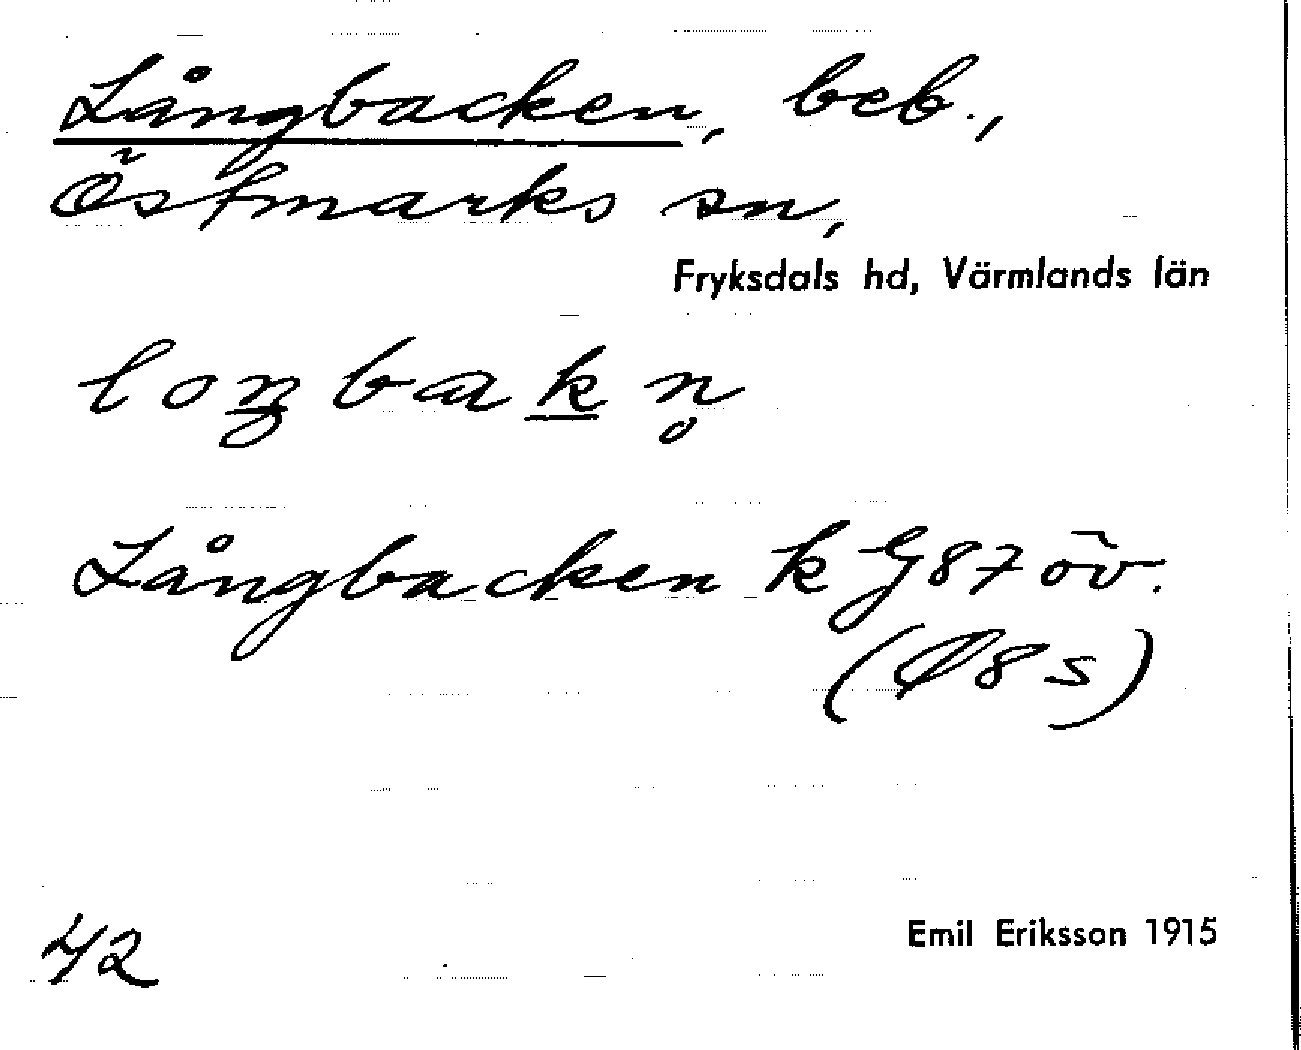 Långbacken, beb.,
Östmarks sn,
Fryksdals hd, Värmlands län
loŋbakn̥
Långbacken k G87 öv.
(Ø8s)
42
Emil Eriksson 1915